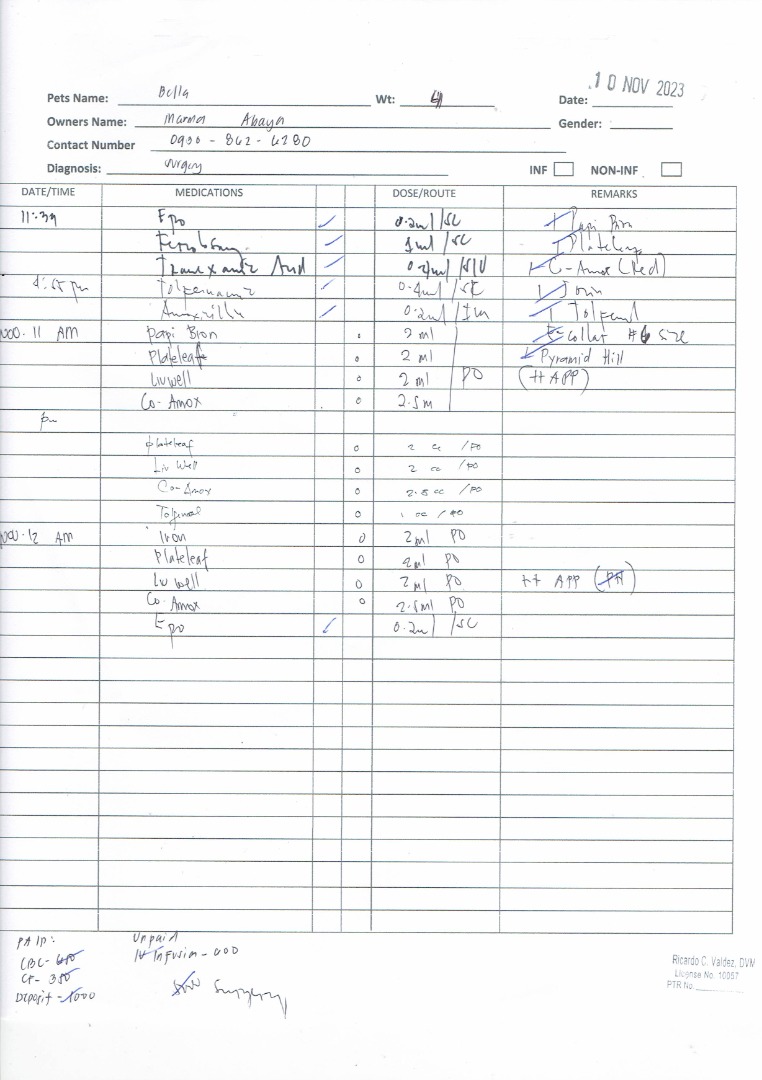 10 NOV 2023
Pets Name: Bella Wt: Date:
Owners Name: Abaya Gender:
Contact Number 0930 - 862 - 6280
Diagnosis: surgery INF NON-INF
DATE/TIME MEDICATIONS DOSE/ROUTE REMARKS
11:39 Epo 0.2ml/SC Papi Bron
1ml/SC Plateleaf
Tranexamic Acid C-Amox (Red)
pm 0.4ml/SC Iron
0.2ml/Im
11 AM Papi Bron 2 ml E-Collar #6 size
Plateleaf 2 ml Pyramid Hill
Livwell 2 ml PO (++ APP)
Co-Amox 2.5m
pm
plateleaf 2 cc /PO
Liv Well 2 cc /PO
Co-Amox 2.5 cc /PO
1 cc /PO
12 AM Iron 2ml PO
Plateleaf 2ml PO
Liv well 2ml PO ++ APP
Co-Amox 2.5ml PO
Epo 0.2ml/SC
PAID: Unpaid
CBC- IV Infusion-
350 Surgery
Deposit - 1000
Ricardo C. Valdez, DVM
License No. 10057
PTR No.